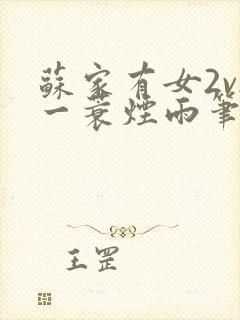 蘇家有女2v
一蓑煙雨筆
王罡